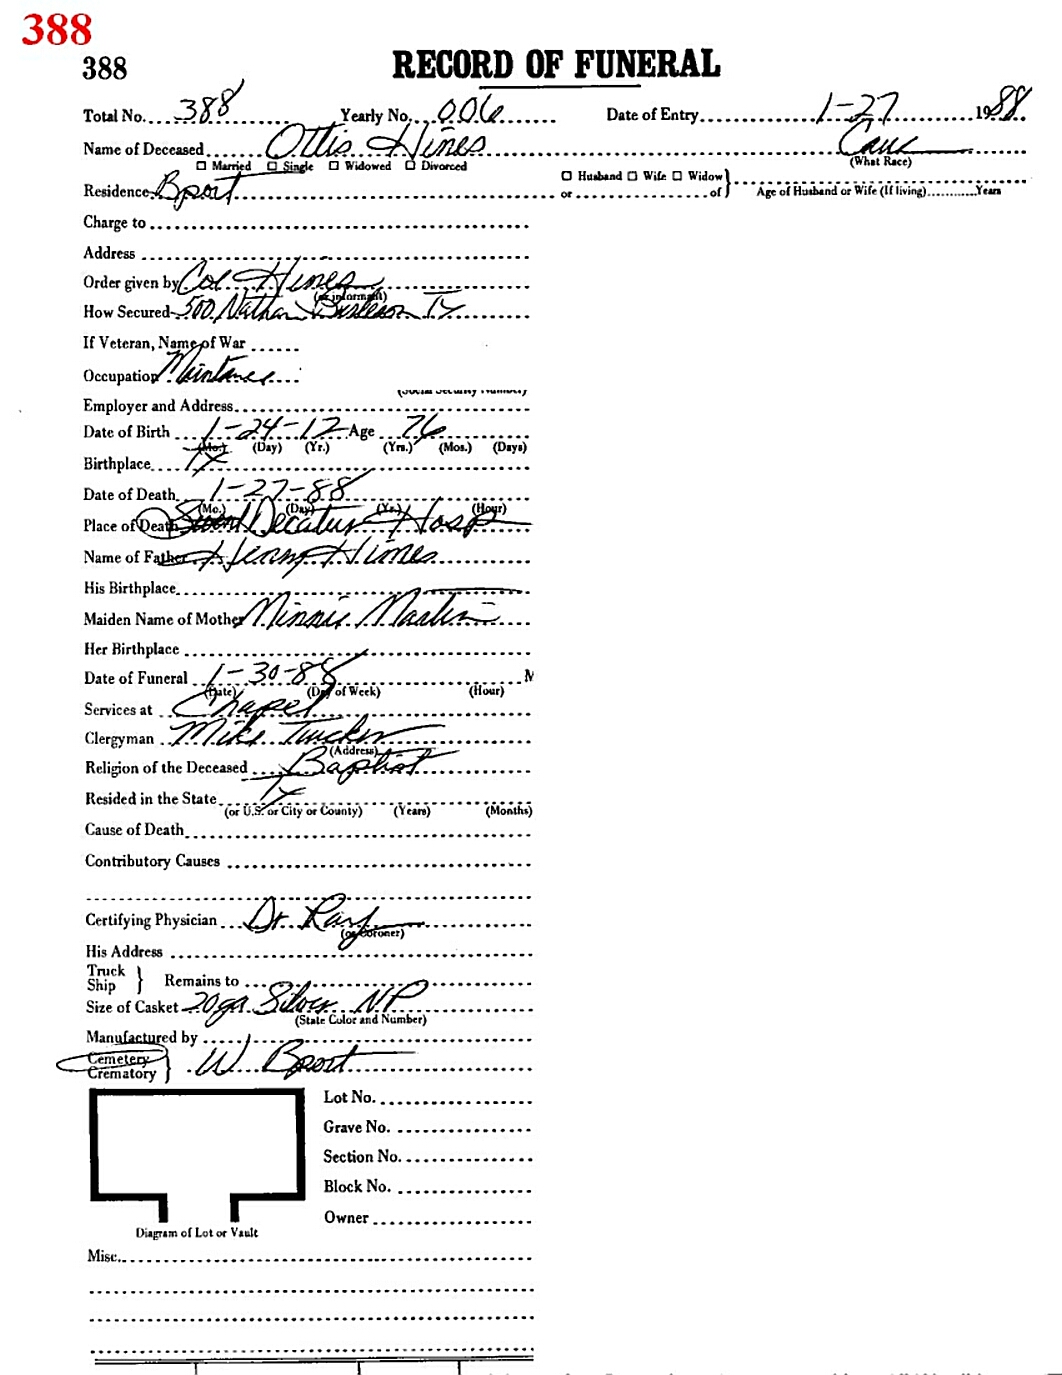 388
388 RECORD OF FUNERAL
Total No. 388 Yearly No. 006 Date of Entry 1-27 1988
Name of Deceased Ottis Hines Cauc
☐ Married ☐ Single ☐ Widowed ☐ Divorced (What Race)
Residence Bport ☐ Husband ☐ Wife ☐ Widow } or of } Age of Husband or Wife (If living) Years
Charge to
Address
Order given by Col Hines
(or informant)
How Secured 500 Nathan Burleson Tx
If Veteran, Name of War
Occupation
(Social Security Number)
Employer and Address
Date of Birth 1-24-12 Age 76
(Mo.) (Day) (Yr.) (Yrs.) (Mos.) (Days)
Birthplace Tx
Date of Death 1-27-88
(Mo.) (Day) (Yr.) (Hour)
Place of Death Decatur Hosp
Name of Father Henry Hines
His Birthplace
Maiden Name of Mother Minnie Martin
Her Birthplace
Date of Funeral 1-30-88 M
(Date) (Day of Week) (Hour)
Services at Chapel
Clergyman Mike Tucker
(Address)
Religion of the Deceased Baptist
Resided in the State Tx
(or U.S. or City or County) (Years) (Months)
Cause of Death
Contributory Causes
Certifying Physician Dr. Ray
(or Coroner)
His Address
Truck
Ship } Remains to
Size of Casket 20ga Silver NP
(State Color and Number)
Manufactured by
Cemetery
Crematory } W. Bport
Lot No.
Grave No.
Section No.
Block No.
Owner
Diagram of Lot or Vault
Misc.